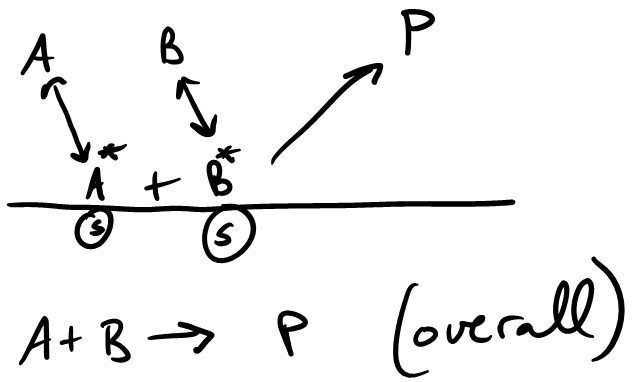 A B P
A* + B*
S S
A + B → P (overall)